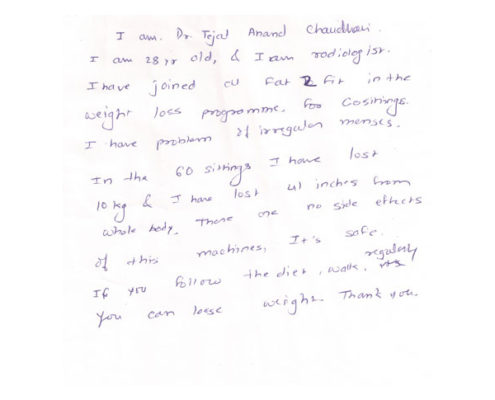 I am. Dr. Tejal Anand Chaudhari.
I am 28 yr old, & I am radiologist.
I have joined Fat 2 Fit in the
weight loss programme. for 60 sittings.
I have problem of irregular menses.
In the 60 sittings I have lost
10 kg & I have lost 41 inches from
whole body. There are no side effects
of this machines, It's safe.
If you follow the diet, walk, regularly
You can loese weight. Thank you.